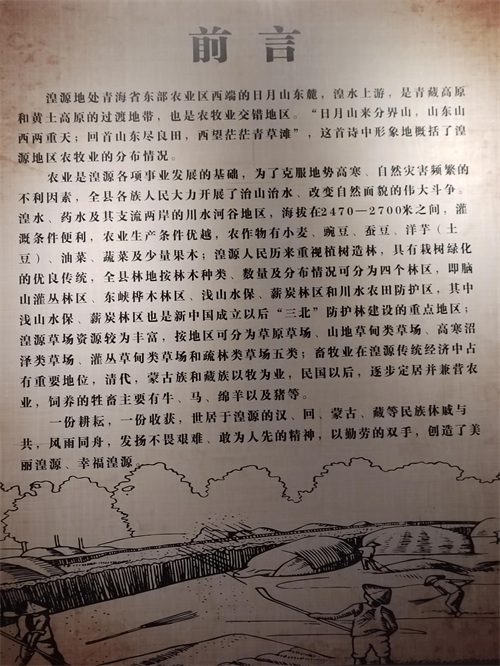 前言
湟源地处青海省东部农业区西端的日月山东麓，湟水上游，是青藏高原
和黄土高原的过渡地带，也是农牧业交错地区。“日月山来分界山，山东山
西两重天；回首山东尽良田，西望茫茫青草滩”，这首诗中形象地概括了湟
源地区农牧业的分布情况。
农业是湟源各项事业发展的基础，为了克服地势高寒、自然灾害频繁的
不利因素，全县各族人民大力开展了治山治水、改变自然面貌的伟大斗争。
湟水、药水及其支流两岸的川水河谷地区，海拔在2470—2700米之间，灌
溉条件便利，农业生产条件优越，农作物有小麦、豌豆、蚕豆、洋芋（土
豆）、油菜、蔬菜及少量果木；湟源人民历来重视植树造林，具有栽树绿化
的优良传统，全县林地按林木种类、数量及分布情况可分为四个林区，即脑
山灌丛林区、东峡桦木林区、浅山水保、薪炭林区和川水农田防护区，其中
浅山水保、薪炭林区也是新中国成立以后“三北”防护林建设的重点地区；
湟源草场资源较为丰富，按地区可分为草原草场、山地草甸类草场、高寒沼
泽类草场、灌丛草甸类草场和疏林类草场五类；畜牧业在湟源传统经济中占
有重要地位，清代，蒙古族和藏族以牧为业，民国以后，逐步定居并兼营农
业，饲养的牲畜主要有牛、马、绵羊以及猪等。
一份耕耘，一份收获，世居于湟源的汉、回、蒙古、藏等民族休戚与
共，风雨同舟，发扬不畏艰难、敢为人先的精神，以勤劳的双手，创造了美
丽湟源、幸福湟源